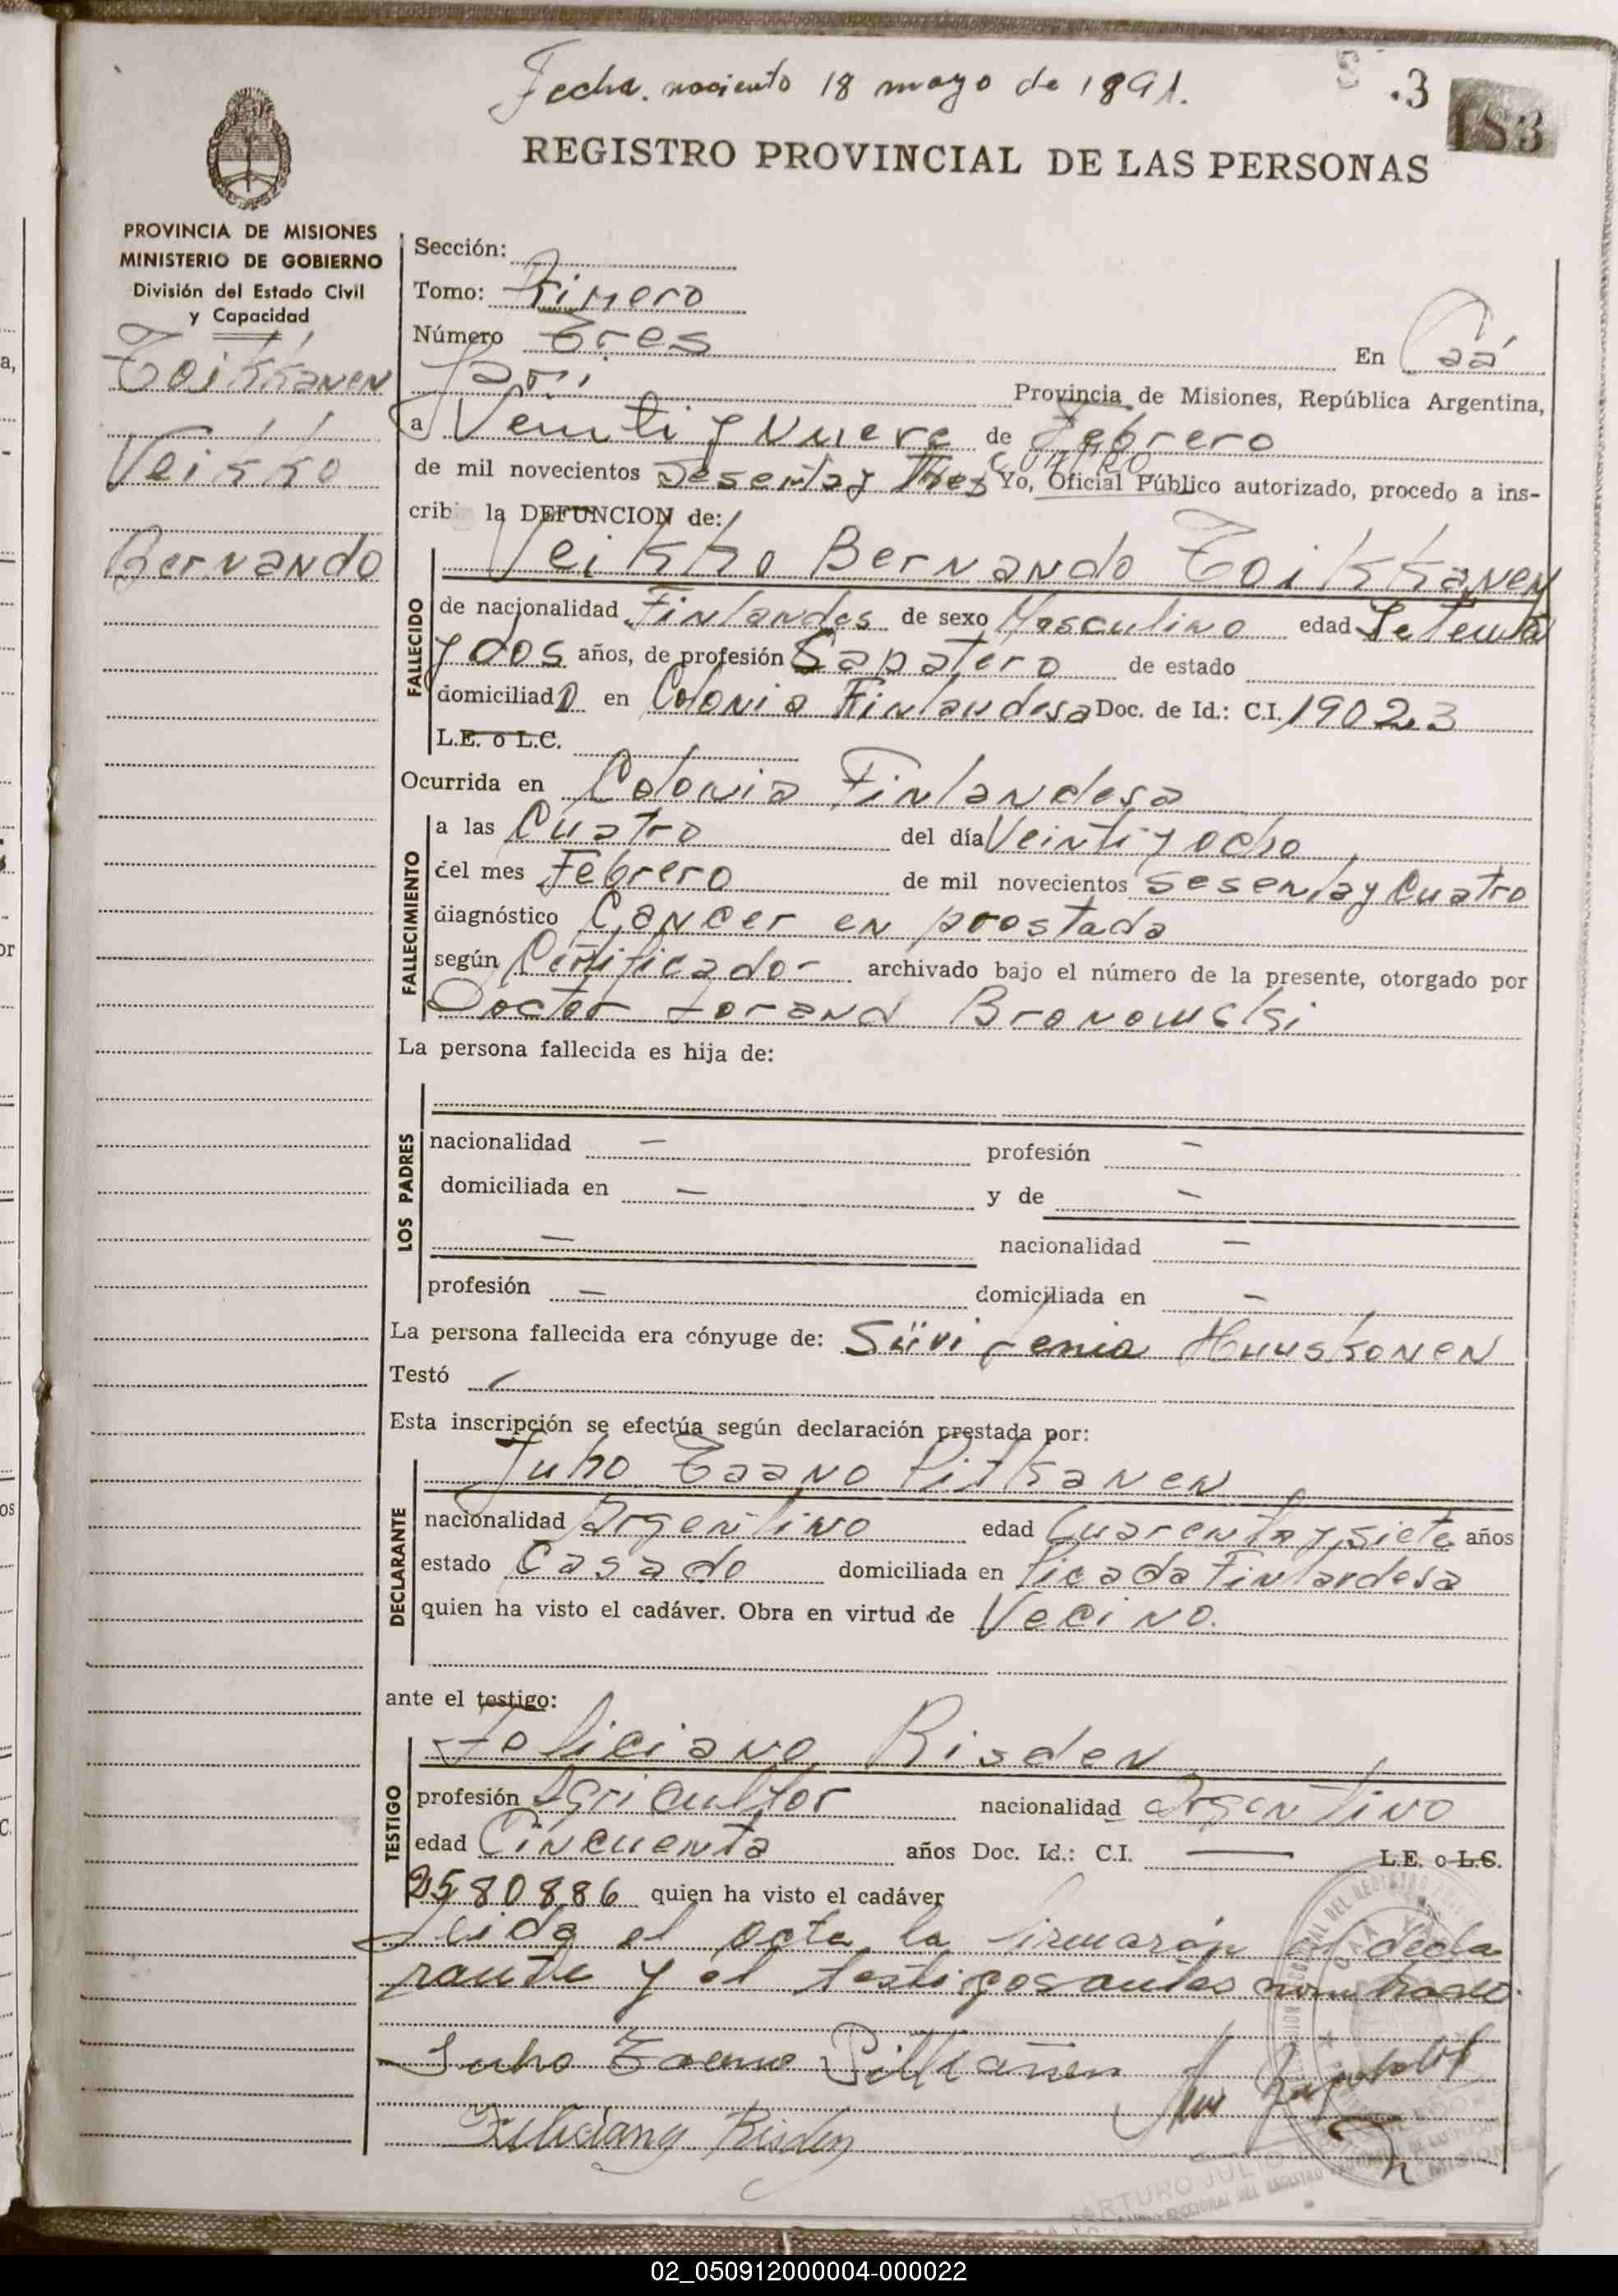 Fecha. naciento 18 mayo de 1891.
.3
183
REGISTRO PROVINCIAL DE LAS PERSONAS
PROVINCIA DE MISIONES
MINISTERIO DE GOBIERNO
División del Estado Civil
y Capacidad
Toikkanen
Veikko
Bernando
Sección:
Tomo: Primero
Número Tres
En Caá
Yarí Provincia de Misiones, República Argentina,
a Veinti y Nueve de Febrero
cuatro
de mil novecientos Sesenta y Tres Yo, Oficial Público autorizado, procedo a ins-
crib la DEFUNCION de:
Veikko Bernando Toikkanen
FALLECIDO
de nacionalidad Finlandes de sexo Masculino edad Setenta
y dos años, de profesión Sapatero de estado
domiciliado en Colonia Finlandesa Doc. de Id.: C.I. 19023
L.E. o L.C.
Ocurrida en Colonia Finlandesa
FALLECIMIENTO
a las Cuatro del día Veinti y ocho
del mes Febrero de mil novecientos Sesenta y Cuatro
diagnóstico Cancer en prostada
según Certificado- archivado bajo el número de la presente, otorgado por
Doctor Lorand Bronowski
La persona fallecida es hija de:
LOS PADRES
nacionalidad — profesión —
domiciliada en — y de —
— nacionalidad —
profesión — domiciliada en —
La persona fallecida era cónyuge de: Süvi Huuskonen
Testó
Esta inscripción se efectúa según declaración prestada por:
Juho Taavo Pitkanen
DECLARANTE
nacionalidad Argentino edad Cuarenta y siete años
estado Casado domiciliada en Picada Finlandesa
quien ha visto el cadáver. Obra en virtud de Vecino.
ante el testigo:
Feliciano Risden
TESTIGO
profesión Agricultor nacionalidad Argentino
edad Cincuenta años Doc. Id.: C.I. — L.E. o L.C.
2580886 quien ha visto el cadáver
Leida el acta la firmarón el decla
rante y el testigos antes nombrado.
Juho Pitkänen
Feliciano Risden
ARTURO JULIO
02_050912000004-000022